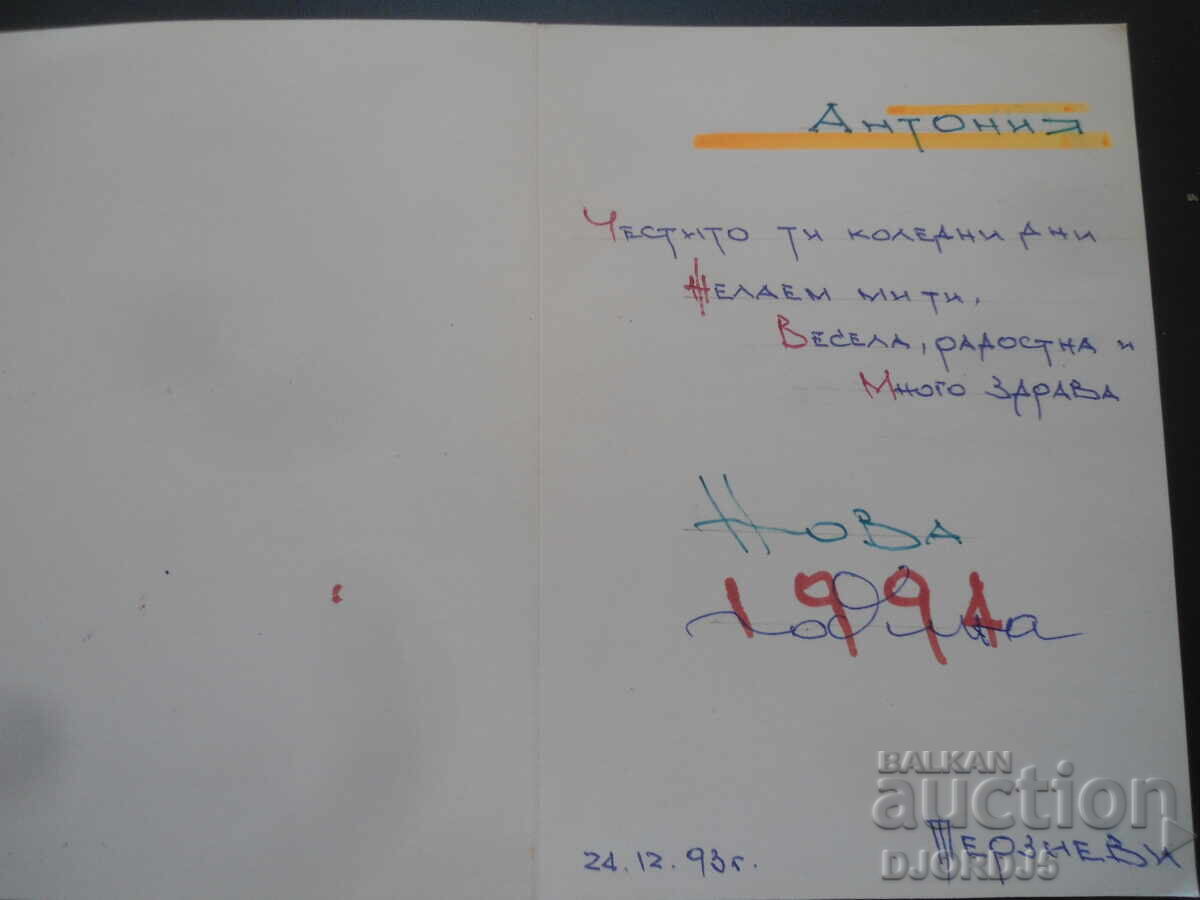 Антония
Честито ти коледни дни
Желаем ми ти,
Весела, радостна и
Много здрава
Нова
1994
година
24.12.93г.
BALKAN
auction
DJORDJ5